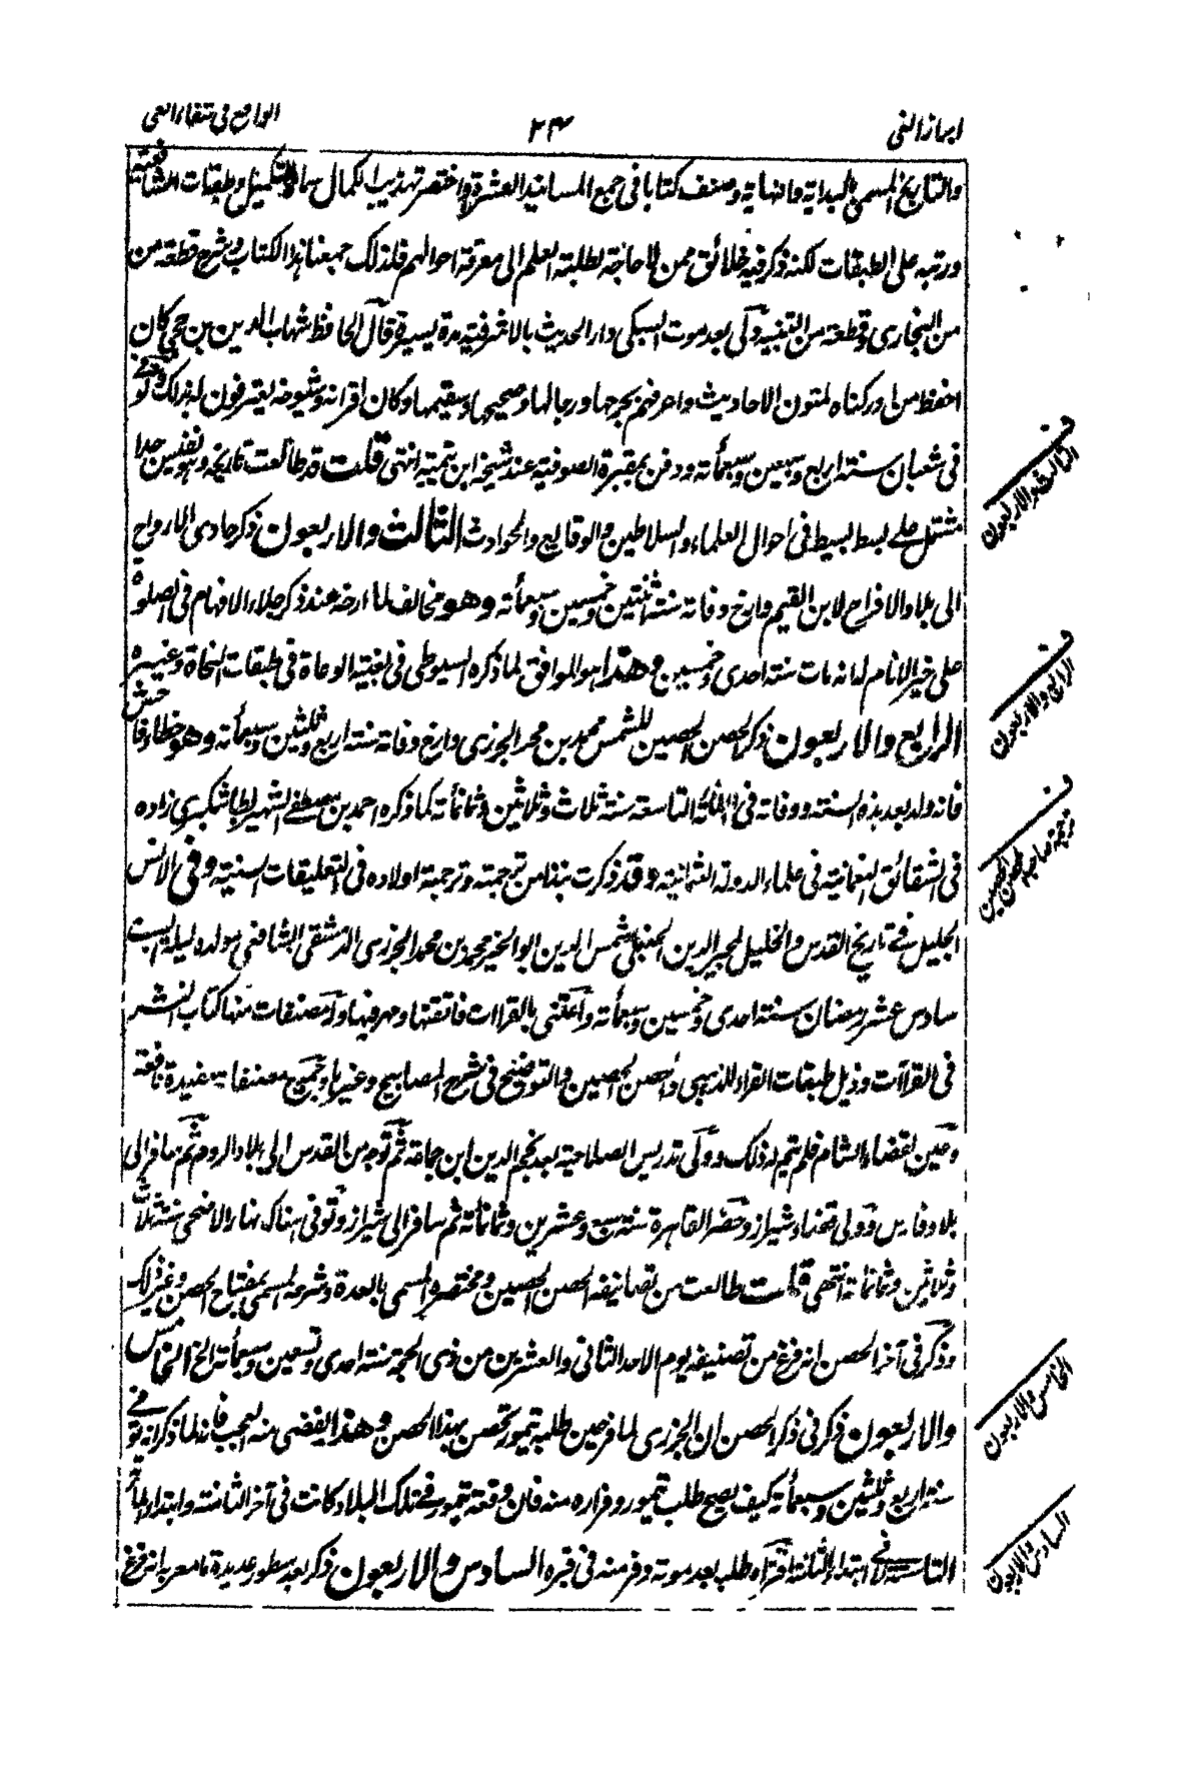 ابراز الغي
٢٤
الواقع في شفاء العي
والتاريخ المسمى بالبداية والنهاية وصنف كتابا في جمع المسانيد العشرة واختصر تهذيب الكمال سماه التكميل وطبقات الشافعية
ورتبه على الطبقات لكنه ذكر فيه خلائق ممن لا حاجة لطلبة العلم الى معرفة احوالهم فلذلك جمعنا هذا الكتاب وشرح قطعة من
من البخاري وقطعة من التنبيه وولى بعد موت السبكي دار الحديث بالاشرفية مدة يسيرة قال الحافظ شهاب الدين بن حجي كان
احفظ من ادركناه لمتون الاحاديث واعرفهم بجرحها ورجالها وصحيحها وسقيمها وكان اقرانه وشيوخه يعترفون له بذلك وتوفي
في شعبان سنة اربع وسبعين وسبعمأته ودفن بمقبرة الصوفية عند شيخه ابن تيمية انتهى قلت قد طالعت تاريخه وهو نفيس جدا
مشتمل على بسط البسيط في احوال العلماء والسلاطين والوقايع والحوادث الثالث والاربعون ذكر حادى الارواح
الى بلاد الافراح لابن القيم وارخ وفاته سنة اثنتين وخمسين وسبعمأته وهو مخالف لما ارخه عند ذكر جلاء الافهام في الصلوة
على خير الانام انه مات سنة احدى وخمسين وهذا هو الموافق لما ذكره السيوطي في بغية الوعاة في طبقات النحاة وغيره
الرابع والاربعون ذكر الحصن الحصين للشمس محمد بن محمد الجزرى وارخ وفاته سنة اربع وثلثين وسبعمأته وهو خطاء فاحش
فانه ولد بعد هذه السنة ووفاته في المائة التاسعة سنة ثلاث وثلاثين وثمانمأته كما ذكره احمد بن مصطفى الشهير بطاشكبرى زاده
في الشقائق النعمانية في علماء الدولة العثمانية وقد ذكرت نبذا من ترجمته وترجمة اولاده في التعليقات السنية وفي الانس
الجليل في تاريخ القدس والخليل لمجير الدين الحنبلي شمس الدين ابو الخير محمد بن محمد الجزرى الدمشقي الشافعي مولده ليلة السبت
سادس عشر رمضان سنة احدى وخمسين وسبعمأته واعتنى بالقراات فاتقنها ومهر فيها وله مصنفات منها كتاب النشر
في القراآت وذيل طبقات القراء للذهبي والحصن الحصين والتوضيح في شرح المصابيح وغيرها وجميع مصنفاته مفيدة نافعة
وعين لقضاء الشام فلم يتم له ذلك وولى تدريس الصلاحية بعد نجم الدين ابن جماعة ثم توجه من القدس الى بلاد الروم ثم سافر الى
بلاد فارس وولى قضاء شيراز وحضر القاهرة سنة سبع وعشرين وثمانمأته ثم سافر الى شيراز وتوفى هناك نهار الاضحى سنة ثلاث
وثلاثين وثمانمأته انتهى قلت طالعت من تصانيفه الحصن الحصين ومختصره المسمى بالعدة وشرحه المسمى بمفتاح الحصن وغير ذلك
وذكر في آخر الحصن انه فرغ من تصنيفه يوم الاحد الثاني والعشرين من ذى الحجة سنة احدى وتسعين وسبعمأته الخ الخامس
والاربعون ذكر في ذكر الحصن ان الجزرى لما فر حين طلبه تيمور تحصن بهذا الحصن وهذا يفضى منه العجب فانه لما ذكر انه توفى
سنة اربع وثلثين وسبعمأته كيف يصح طلب تيمور وفراره منه فان وقعة تيمور في تلك البلاد كانت في آخر الثامنة وابتداء المأته
التاسعة لا في ابتداء الثامنة افتراه طلب بعد موته وفر منه في قبره السادس والاربعون ذكر بعد سطور عديدة ما معربه انه فرغ
ف
الثالث والاربعون
ف
الرابع والاربعون
ف
ترجمة صاحب الحصن الحصين
الخامس والاربعون
السادس والاربعون